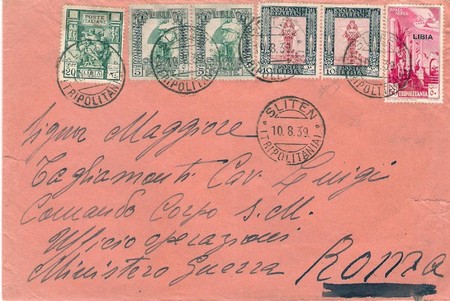 POSTE ITALIANE
20
5
5
10
10
LIBIA
TRIPOLITANIA
50
10.8.39
(TRIPOLITANIA)
SLITEN
10.8.39.
(TRIPOLITANIA)
Signor Maggiore
Tagliamonti Cav. Luigi
Comando Corpo S. M.
Ufficio operazioni
Ministero Guerra Roma